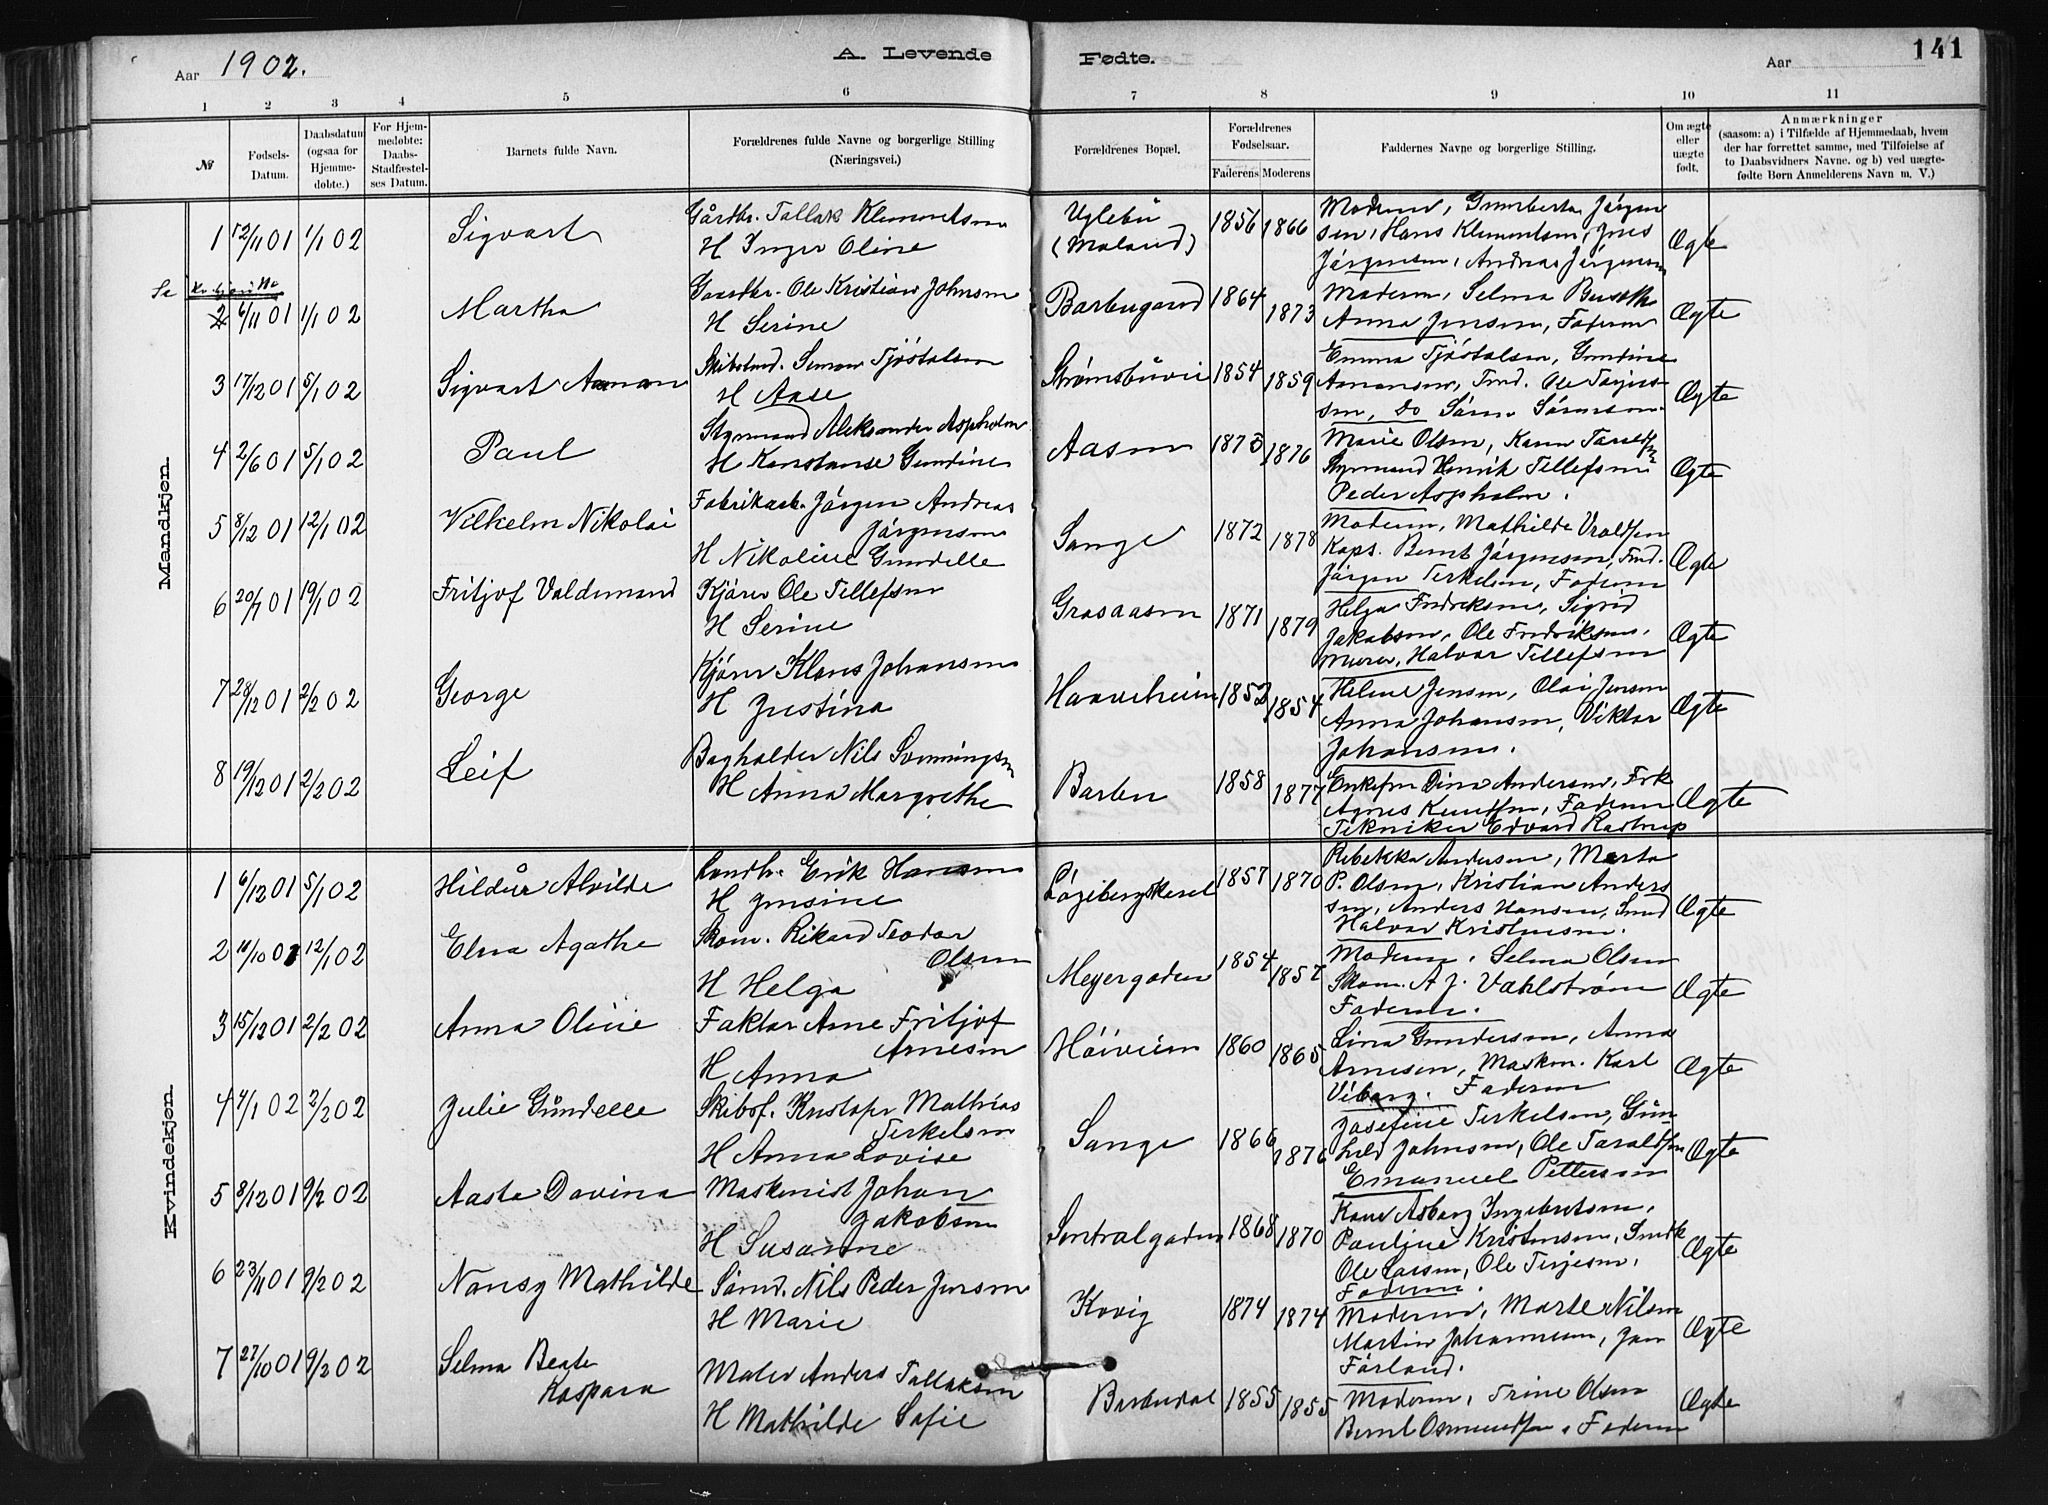 Aar 1902. A. Levende Fødte. Aar 141
1 2 3 4 5 6 7 8 9 10 11
№
Fødsels-Datum.
Daabsdatum (ogsaa for Hjemme-døbte.)
For Hjem-medøbte: Daabs-Stadfæstel-ses Datum.
Barnets fulde Navn.
Forældrenes fulde Navne og borgerlige Stilling
(Næringsvei.)
Forældrenes Bopæl.
Forældrenes Fødselsaar.
Faderens Moderens
Faddernes Navne og borgerlige Stilling.
Om ægte eller uægte født.
Anmærkninger
(saasom: a) i Tilfælde af Hjemmedaab, hvem
der har forrettet samme, med Tilføielse af
to Daabsvidners Navne. og b) ved uægte-
fødte Børn Anmelderens Navn m. V.)
Mandkjøn.
1 12/11 01 1/1 02 Sigvart Gårdbr. Tallak Klemmetsen
H Inger Oline
Uglebu
(Moland)
1856 1866
Moderen, Gunberta Jørgen
sen, Hans Klemmetsen, Jens
Jørgensen, Andreas Jørgensen
Ægte
2 6/11 01 1/1 02 Martha Gaardbr. Ole Kristian Johnsen
H Serine
Barbugaard 1864 1873
Moderen, Selma
Anna Jensen, Faderen
Ægte
3 17/12 01 5/1 02 Sigvart Aanon Skibstmd. Simon Tjöstolsen
H Aase
Strømsbuvei 1854 1859
Emma Tjöstolsen, Gundine
Aanonsen, Tmd. Ole Terjes
sen, Do Sören Sörensen
Ægte
4 2/6 01 5/1 02 Paul Styrmand Aleksander Aspholm
H Konstanse Gundine
Aasen 1873 1876
Marie Olsen, Karen Taraldsen
Styrmand Henrik Tellefsen
Peder Aspholm.
Ægte
5 8/12 01 12/1 02 Vilhelm Nikolai Fabrikarb. Jörgen Andreas
Jörgensen
H Nikoline Gundelle
Songe 1872 1878
Moderen, Mathilde Vroldsen
Kaps. Bernt Jörgensen, Tmd.
Jörgen Terkelsen, Faderen
Ægte
6 20/7 01 19/1 02 Fritjof Valdemand Kjörer Ole Tellefsen
H Serine
Graaasen 1871 1879
Helga Fredriksen, Sigrid
Jakobsen, Ole Fredriksen,
Murer, Halvor Tellefsen
Ægte
7 28/12 01 2/2 02 George Kjörer Klaus Johansen
H Justina
Haaveheien 1852 1854
Helene Jensen, Olai Jensen
Anna Johansen, Viktor
Johansen.
Ægte
8 19/12 01 2/2 02 Leif Bogholder Nils Svenningsen
H Anna Margrethe
Barbu 1858 1877
Enkefru Dina Andersen, Frk
Agnes Knudsen, Faderen
Tekniker Edvard Rastrup
Ægte
Kvindekjøn.
1 6/12 01 5/1 02 Hildur Alvilde Landh. Erik Hansen
H Jensine
1857 1870
Rebekka Andersen, Marta
P. Olsen, Kristian Anders
sen, Anders Hansen, Smed
Halvor Kristensen.
Ægte
2 11/10 01 12/1 02 Elna Agathe Skom. Rikard Teodor
Olsen
H Helga
Meyergaden 1854 1857
Moderen, Selma Olsen
Skom. A J. Vahlström
Faderen.
Ægte
3 15/12 01 2/2 02 Anna Oline Faktor Arne Fritjof
Arnesen
H Anna
Höiveien 1860 1865
Lina Gundersen, Anna
Arnesen, Maskm. Karl
Viborg. Faderen
Ægte
4 4/1 02 2/2 02 Julie Gundelle Skibsf. Kristofer Mathias
Terkelsen
H Anna Lovise
Songe 1866 1876
Josefine Terkelsen, Gun-
hild Johnsen, Ole Taraldsen
Emanuel Pettersen
Ægte
5 8/12 01 9/2 02 Aasta Davina Maskenist Johan
Jakobsen
H Susanne
Sentralgaden 1868 1870
Kone Asborg Ingebretsen,
Pauline Kristensen, Smdk
Ole Larsen, Ole Terjesen,
Faderen.
Ægte
6 23/11 01 9/2 02 Nansy Mathilde Sömd. Nils Peder Jensen
H Marie
Kovig 1874 1874
Moderen, Marte Nilsen
Martin Johannesen, Jan
Förland.
Ægte
7 27/10 01 9/2 02 Selma Beate
Kaspara
Maler Anders Tallaksen
H Mathilde Sofie
Barbudal 1855 1855
Moderen, Trine Olsen
Bernt Osmundsen, Faderen
Ægte